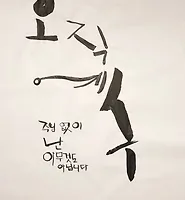 오직
예수
주님 없이
난
아무것도
아닙니다